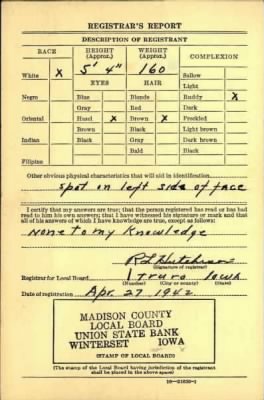 REGISTRAR'S REPORT
DESCRIPTION OF REGISTRANT
RACE HEIGHT (Approx.) WEIGHT (Approx.) COMPLEXION
5' 4" 160
White X Sallow
EYES HAIR Light
Negro Blue Blonde Ruddy X
Gray Red Dark
Oriental Hazel X Brown X Freckled
Brown Black Light brown
Indian Black Gray Dark brown
Bald Black
Filipino
Other obvious physical characteristics that will aid in identification
Spot on left side of face
I certify that my answers are true; that the person registered has read or has had
read to him his own answers; that I have witnessed his signature or mark and that
all of his answers of which I have knowledge are true, except as follows:
None to my Knowledge
R L Hutchison
(Signature of registrar)
Registrar for Local Board 1 Truro Iowa
(Number) (City or county) (State)
Date of registration Apr. 27 1942
MADISON COUNTY
LOCAL BOARD
UNION STATE BANK
WINTERSET IOWA
(STAMP OF LOCAL BOARD)
(The stamp of the Local Board having jurisdiction of the registrant
shall be placed in the above space)